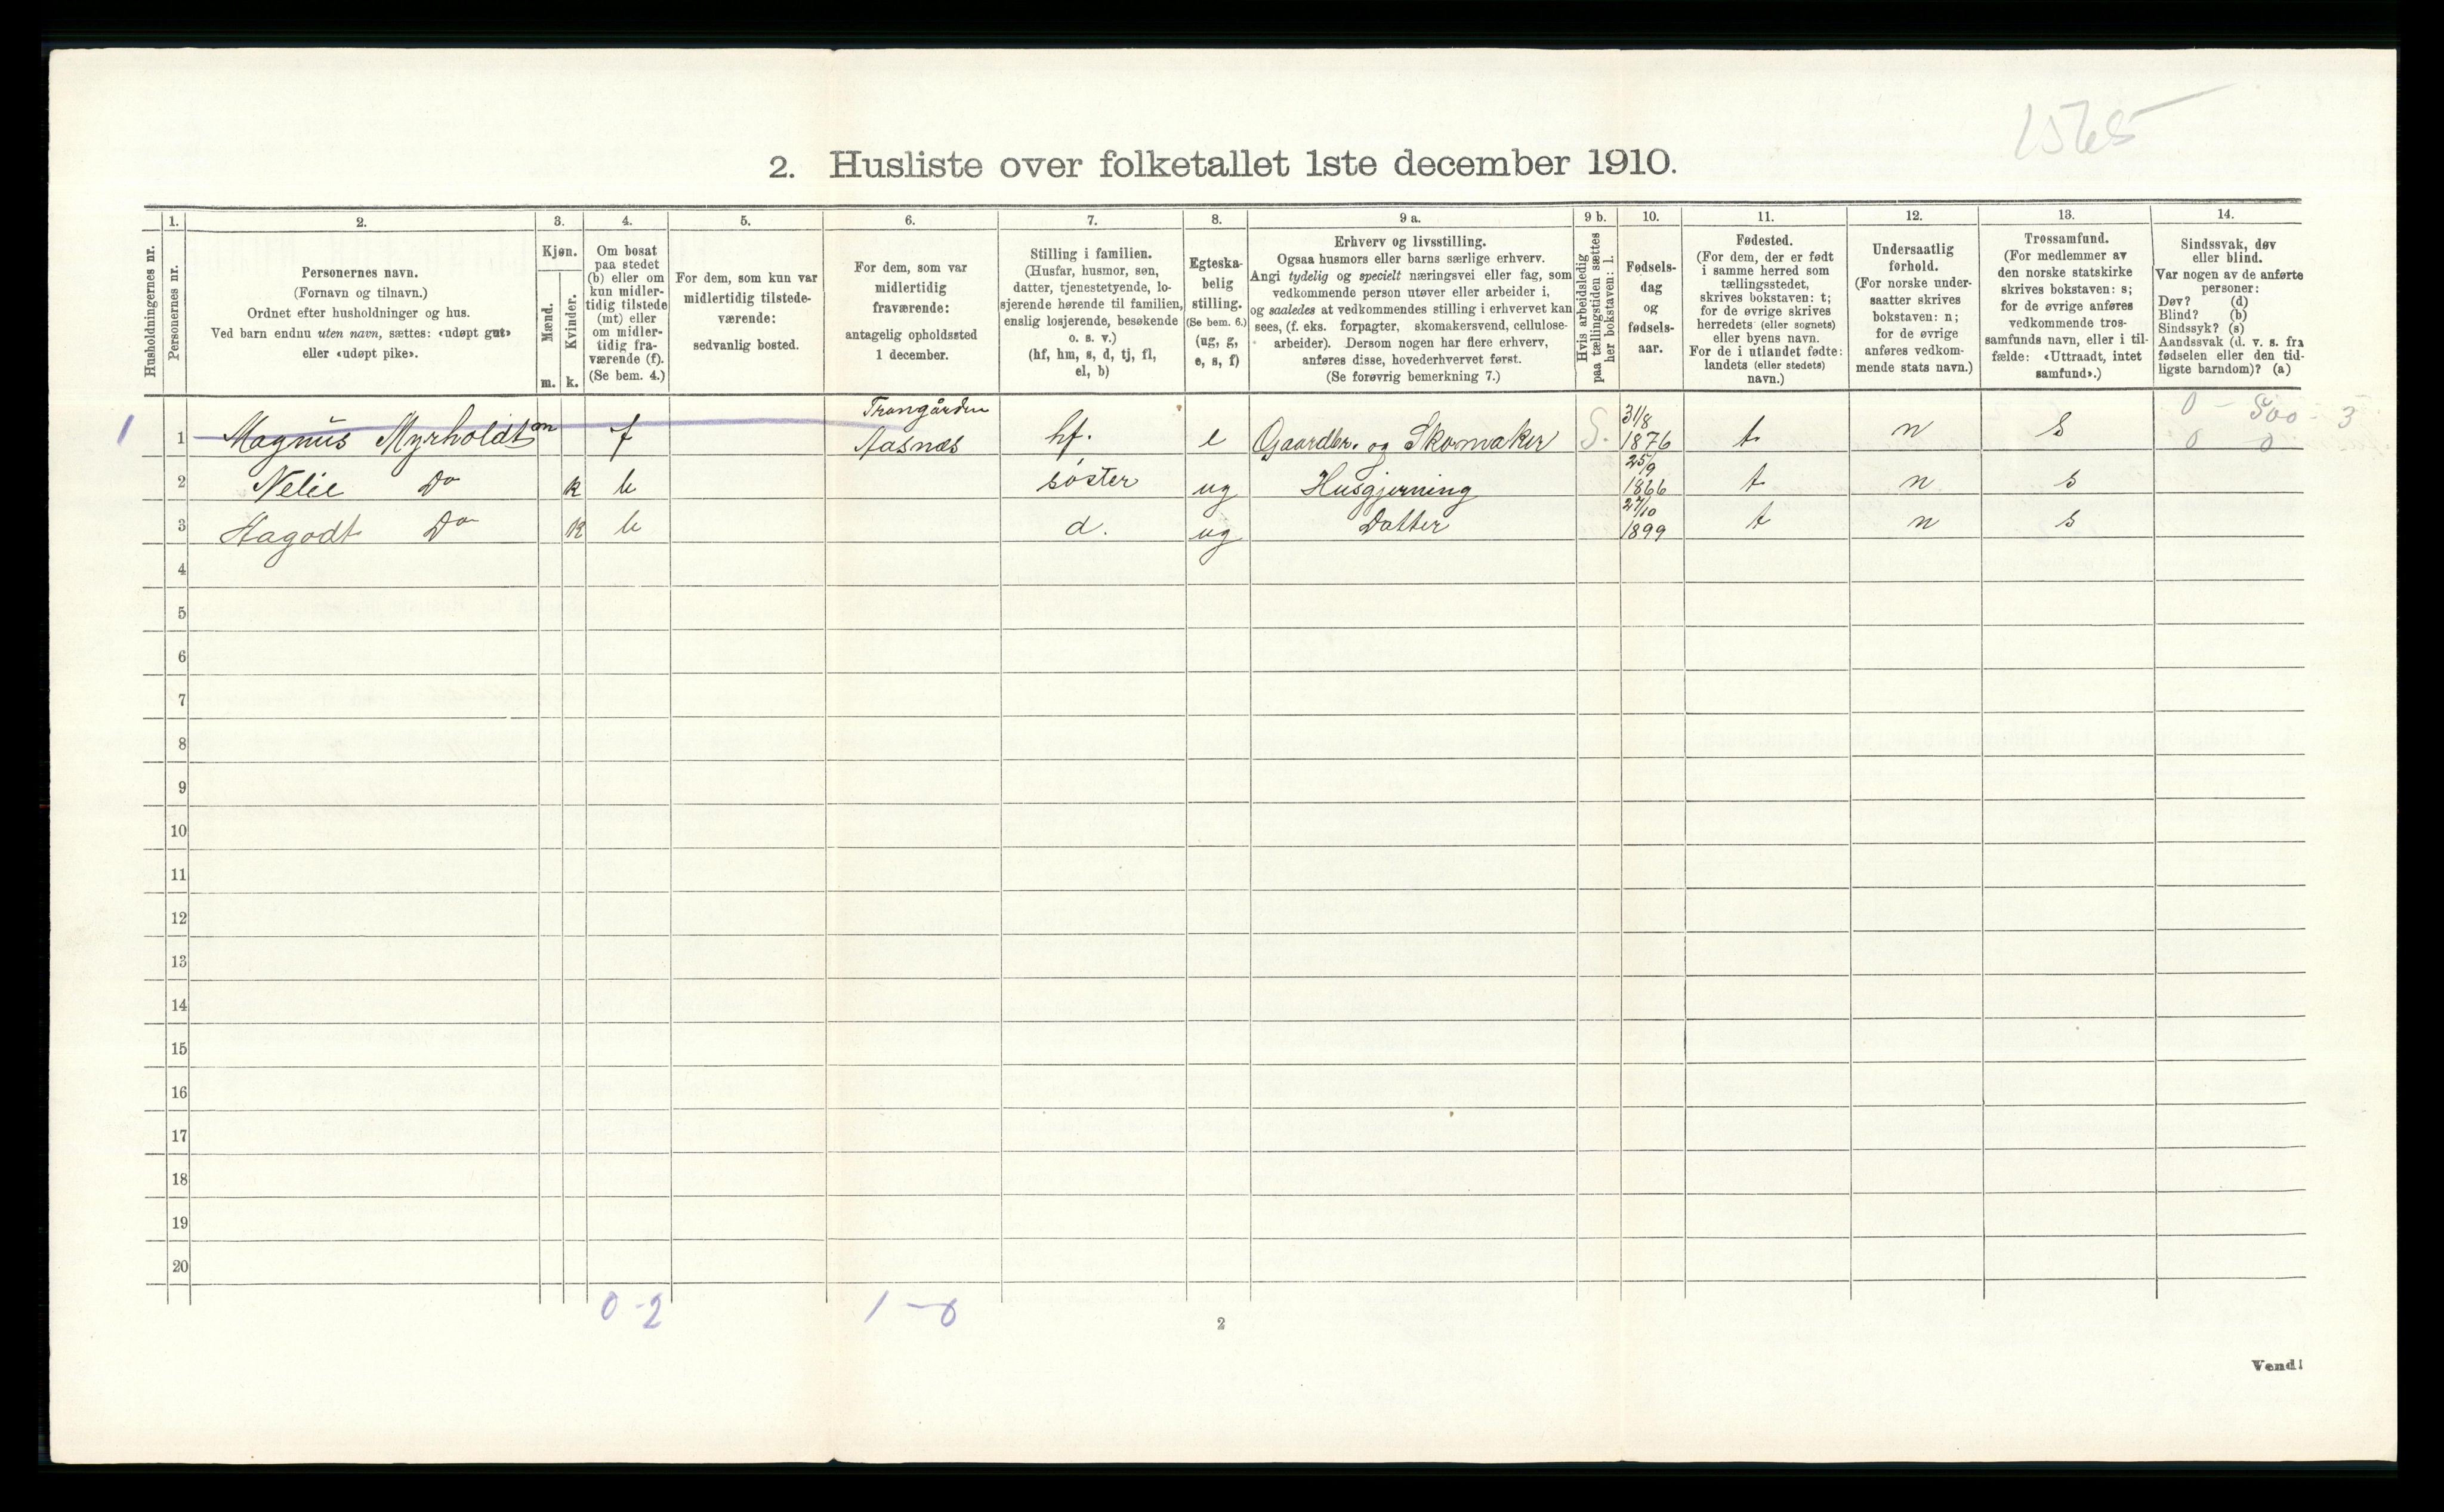 1565
2. Husliste over folketallet 1ste december 1910.
Husholdningernes nr.
1.
Personernes nr.
2.
Personernes navn.
(Fornavn og tilnavn.)
Ordnet efter husholdninger og hus.
Ved barn endnu uten navn, sættes: «udøpt gut»
eller «udøpt pike».
3.
Kjøn.
Mænd.
Kvinder.
m.
k.
4.
Om bosat
paa stedet
(b) eller om
kun midler-
tidig tilstede
(mt) eller
om midler-
tidig fra-
værende (f).
(Se bem. 4.)
5.
For dem, som kun var
midlertidig tilstede-
værende:
sedvanlig bosted.
6.
For dem, som var
midlertidig
fraværende:
antagelig opholdssted
1 december.
7.
Stilling i familien.
(Husfar, husmor, søn,
datter, tjenestetyende, lo-
sjerende hørende til familien,
enslig losjerende, besøkende
o. s. v.)
(hf, hm, s, d, tj, fl,
el, b)
8.
Egteska-
belig
stilling.
(Se bem. 6.)
(ug, g,
e, s, f)
9 a.
Erhverv og livsstilling.
Ogsaa husmors eller barns særlige erhverv.
Angi tydelig og specielt næringsvei eller fag, som
vedkommende person utøver eller arbeider i,
og saaledes at vedkommendes stilling i erhvervet kan
sees, (f. eks. forpagter, skomakersvend, cellulose-
arbeider). Dersom nogen har flere erhverv,
anføres disse, hovederhvervet først.
(Se forøvrig bemerkning 7.)
9 b.
Hvis arbeidsledig
paa tællingstiden sættes
her bokstaven: l.
10.
Fødsels-
dag
og
fødsels-
aar.
11.
Fødested.
(For dem, der er født
i samme herred som
tællingsstedet,
skrives bokstaven: t;
for de øvrige skrives
herredets (eller sognets)
eller byens navn.
For de i utlandet fødte:
landets (eller stedets)
navn.)
12.
Undersaatlig
forhold.
(For norske under-
saatter skrives
bokstaven: n;
for de øvrige
anføres vedkom-
mende stats navn.)
13.
Trossamfund.
(For medlemmer av
den norske statskirke
skrives bokstaven: s;
for de øvrige anføres
vedkommende tros-
samfunds navn, eller i til-
fælde: «Uttraadt, intet
samfund».)
14.
Sindssvak, døv
eller blind.
Var nogen av de anførte
personer:
Døv? (d)
Blind? (b)
Sindssyk? (s)
Aandssvak (d. v. s. fra
fødselen eller den tid-
ligste barndom)? (a)
1 1 Magnus Myrholdt m f Trangården Aasnæs hf. e Gaardbr. og Skomaker S. 31/8 1876 t n s 0 - 500 - 3 0 0
2 Nelie Do k b søster ug Husgjerning 25/9 1866 t n s
3 Hagodt Do k b d. ug Datter 27/10 1899 t n s
4
5
6
7
8
9
10
11
12
13
14
15
16
17
18
19
20
0-2 1-0
2
Vend!